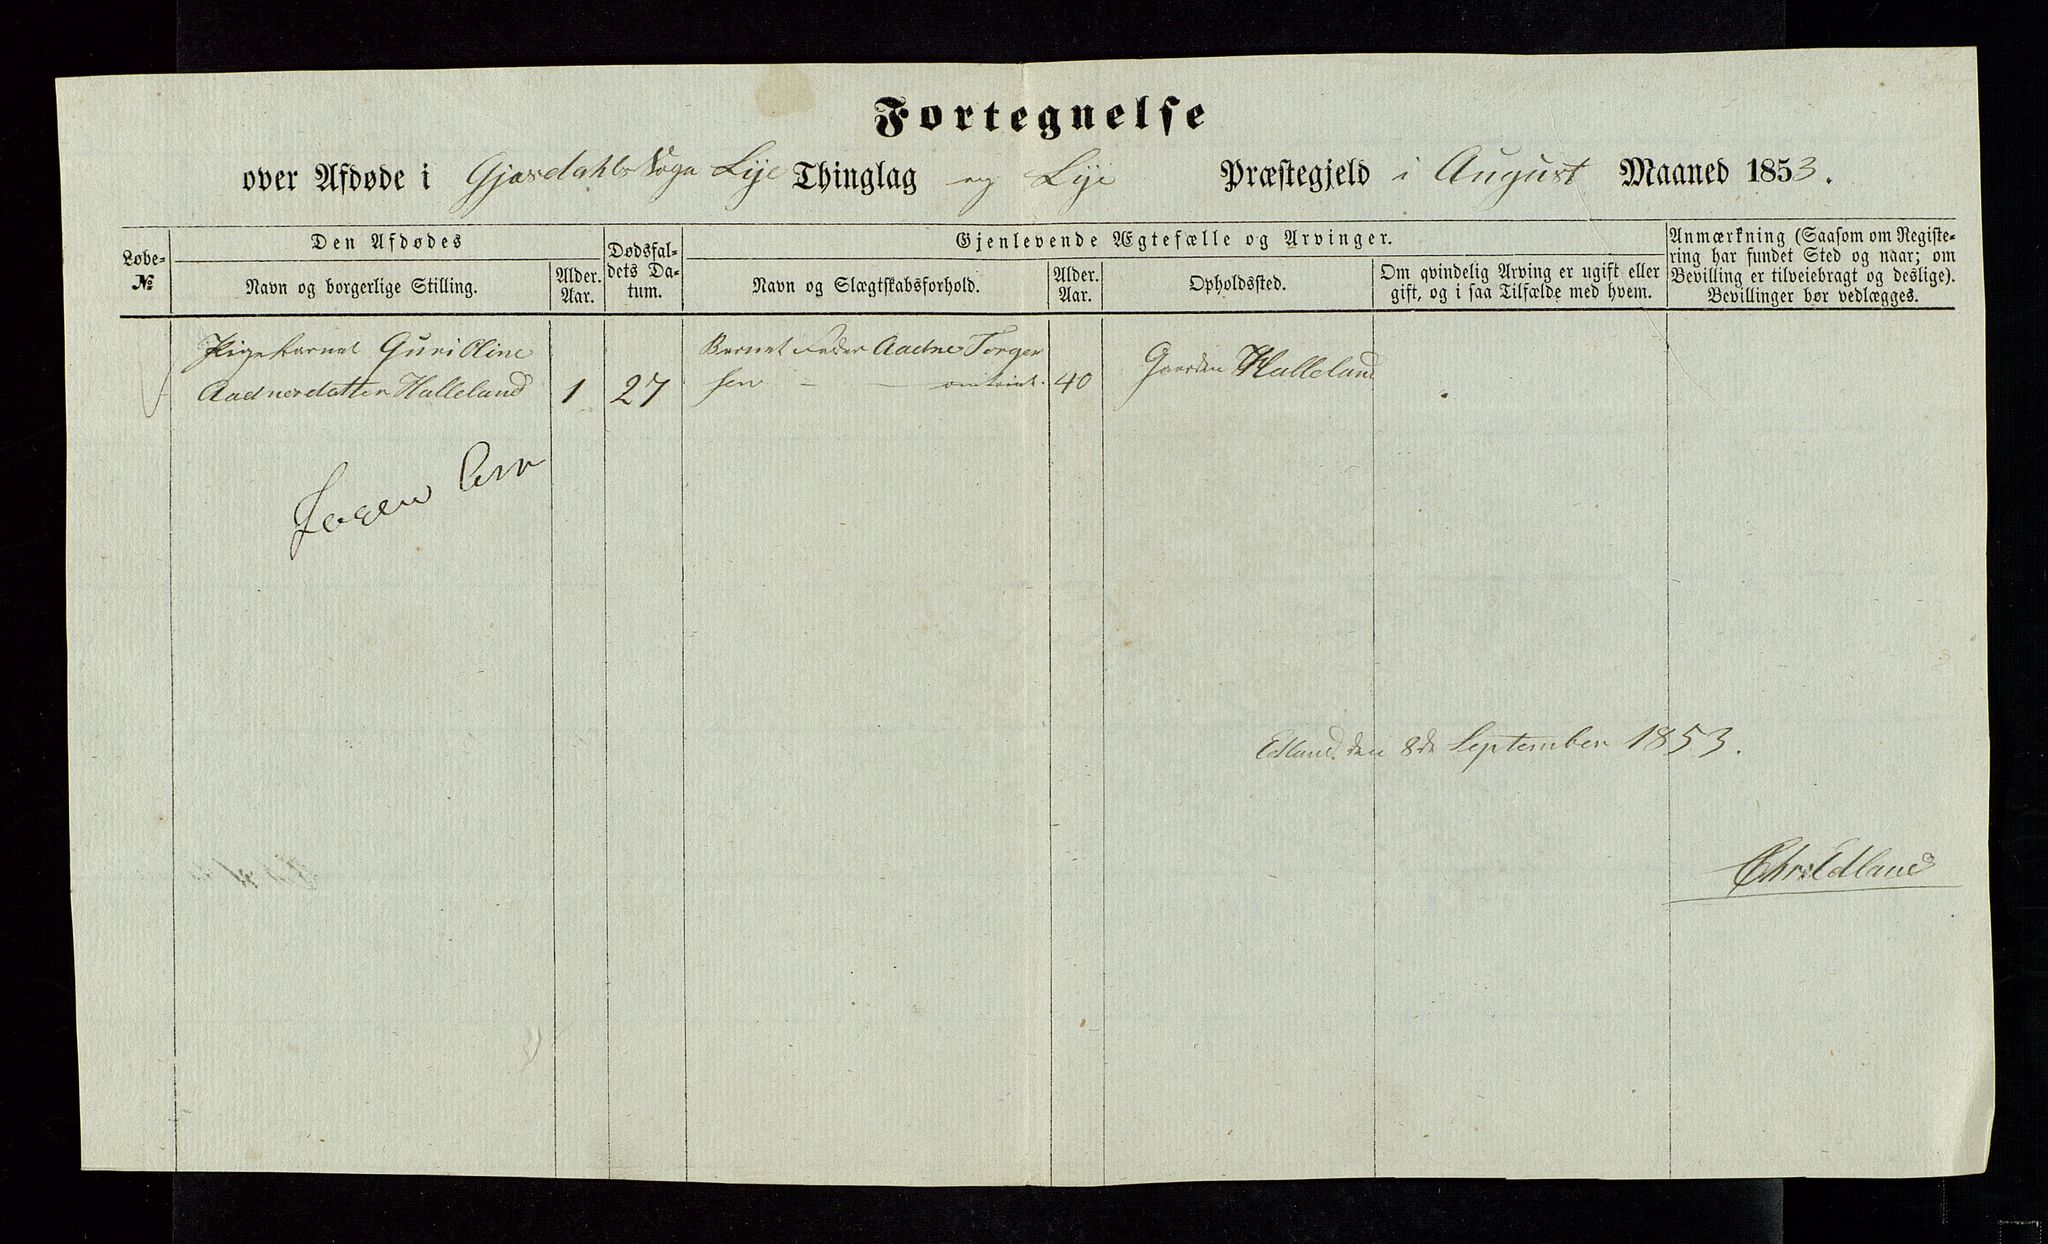 Fortegnelse
over Afdøde i Gjæsdahls Sogn Lye Thinglag og Lye Præstegjeld i August Maaned 1853.
Løbe-
№
Den Afdødes
Navn og borgerlige Stilling.
Alder.
Aar.
Dødsfal-
dets Da-
tum.
Gjenlevende Ægtefælle og Arvinger.
Navn og Slægtskabsforhold.
Alder.
Aar.
Opholdssted.
Om qvindelig Arving er ugift eller
gift, og i saa Tilfælde med hvem.
Anmærkning (Saasom om Registe-
ring har fundet Sted og naar; om
Bevilling er tilveiebragt og deslige).
Bevillinger bør vedlægges.
Pigebarnet Guri Oline Barnets Fader Aadne Torger
Aadnesdatter Halleland 1 27 sen - - omtrent 40 Gaarden Halleland
Ingen Arv
Edland den 8de September 1853.
Chr: Edland